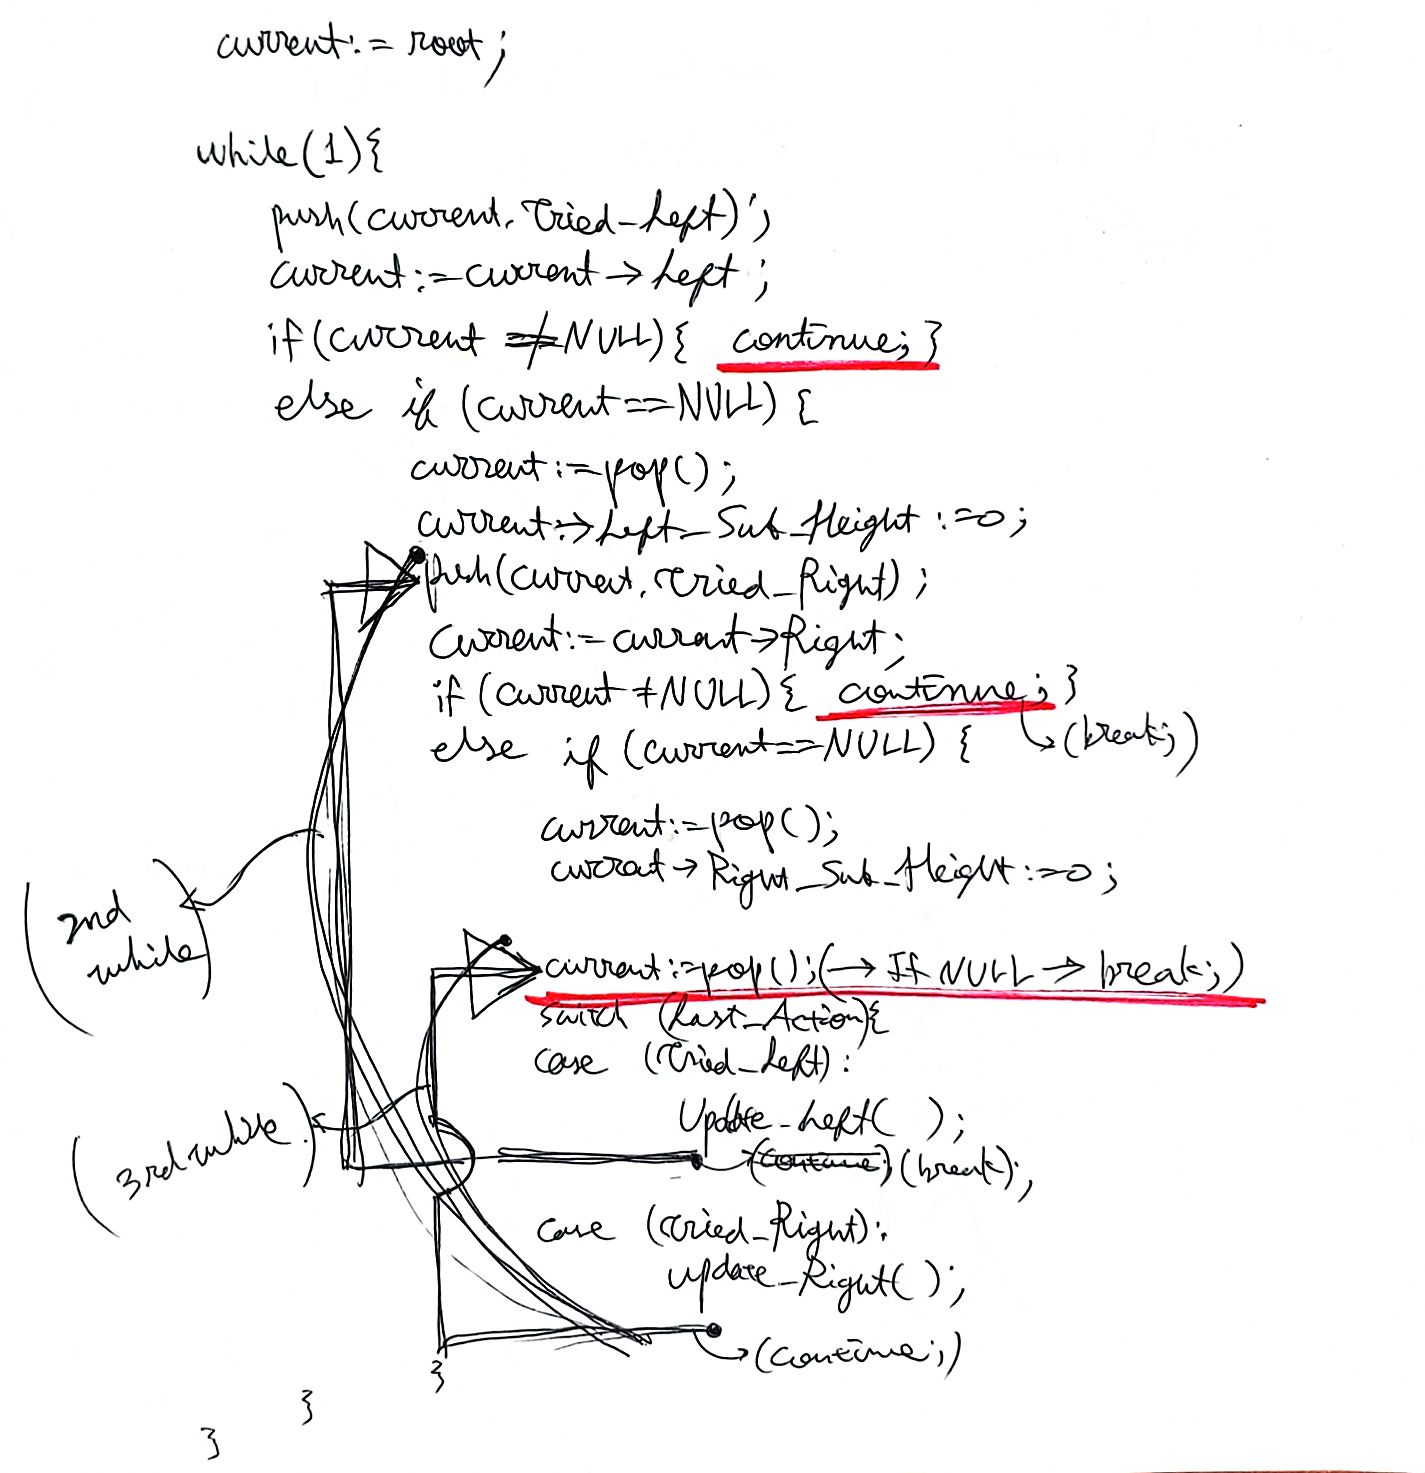 current:= root;
while(1){
push(current, Tried_Left);
current:=current→Left;
if(current ≠NULL){ continue; }
else if (current==NULL) {
current:=pop();
current:→Left_Sub_Height :=0;
push(current, Tried_Right);
Current:=current→Right;
if(current ≠NULL){ continue; }
↳(break;)
else if (current==NULL) {
current:=pop();
current→Right_Sub_Height:=0;
(2nd
while)
current:=pop();(→ If NULL → break;)
switch (Last_Action){
case (Tried_Left):
Update_Left( );
(3rd while)
(continue;) (break);
case (Tried_Right):
update_Right( );
→(continue;)
}
}
}